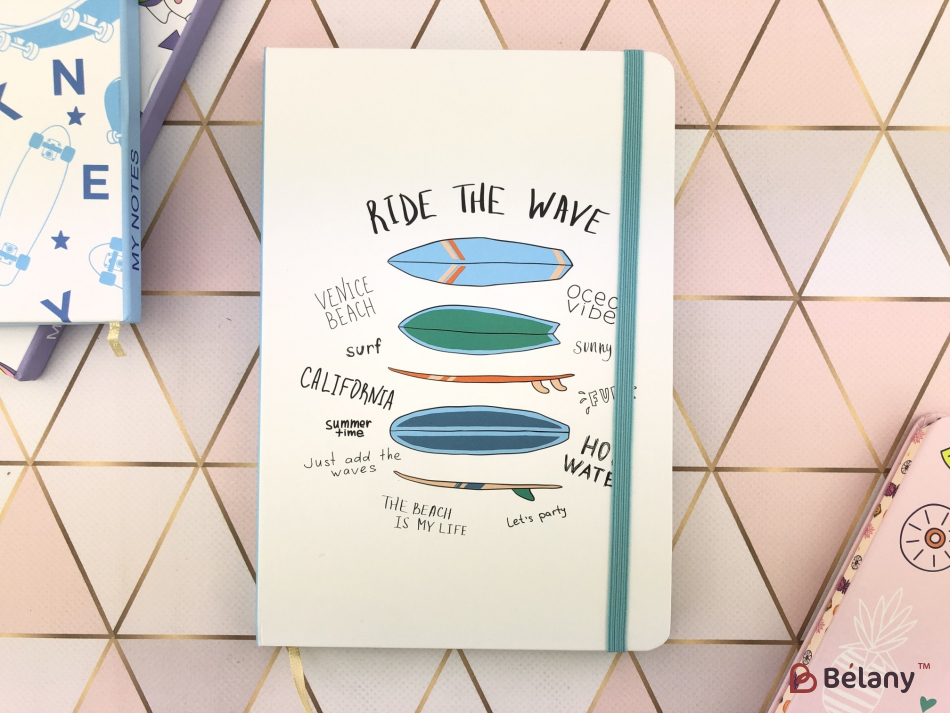 N
K
E
Y
MY NOTES
RIDE THE WAVE
VENICE
BEACH
surf
CALIFORNIA
summer
time
Just add the
waves
THE BEACH
IS MY LIFE
Let's party
sunny
Bélany™